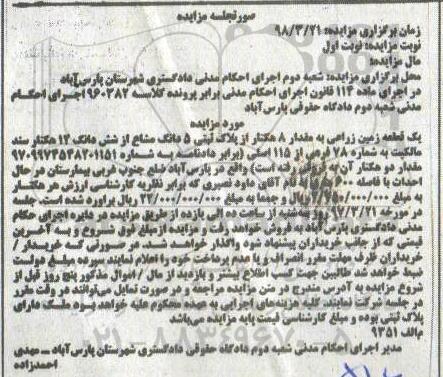 صورتجلسه مزایده
زمان برگزاری مزایده: ۹۸/۳/۲۱
نوبت مزایده: نوبت اول
مال مزایده:
محل برگزاری مزایده: شعبه دوم اجرای احکام مدنی دادگستری شهرستان پارس‌آباد
در اجرای ماده ۱۱۴ قانون اجرای احکام مدنی برابر پرونده کلاسه ۹۶۰۳۸۲ اجرای احکام
مدنی شعبه دوم دادگاه حقوقی پارس‌آباد
مورد مزایده
یک قطعه زمین زراعی به مقدار ۸ هکتار از پلاک ثبتی ۵ دانگ مشاع از شش دانگ ۱۲ هکتار سند
مالکیت به شماره ۷۸ فرعی از ۱۱۵ اصلی (برابر دادنامه به شماره ۹۷۰۹۹۷۴۵۳۸۲۰۱۱۵۱
مقدار دو هکتار آن به فروش رفته است) واقع در پارس‌آباد ضلع جنوب غربی بیمارستان در حال
احداث با فاصله بنام آقای داود نصیری که برابر نظریه کارشناسی ارزش هر هکتار
به مبلغ ریال و جمعا به مبلغ ریال براورده شده است. جلسه
در مورخه ۹۷/۳/۲۱ روز سه‌شنبه از ساعت ده الی یازده از طریق مزایده در دایره اجرای حکام
مدنی دادگستری پارس‌آباد به فروش خواهد رفت و مزایده از مبلغ فوق شروع و به آخرین
قیمتی که از جانب خریداران پیشنهاد شود واگذار خواهد شد. در صورتی که خریدار/
خریداران ظرف مهلت مقرر انصراف و یا عدم پرداخت خود را اعلام نمایند سپرده مبلغ دولت
ضبط خواهد شد طالبین جهت کسب اطلاع بیشتر و بازدید از مال / اموال مذکور پنج روز قبل از
شروع مزایده به آدرس مندرج در متن مزایده مراجعه و در صورت تمایل می‌توانند در وقت مقرر
در جلسه شرکت نمایند. کلیه هزینه‌های اجرایی به عهده محکوم علیه خواهد بود ملک دارای
پلاک ثبتی بوده و مبلغ کارشناسی قیمت پایه مزایده می‌باشد
م‌الف ۹۳۵۱
مدیر اجرای احکام مدنی شعبه دوم دادگاه حقوقی دادگستری شهرستان پارس‌آباد ــ مهدی
احمدزاده